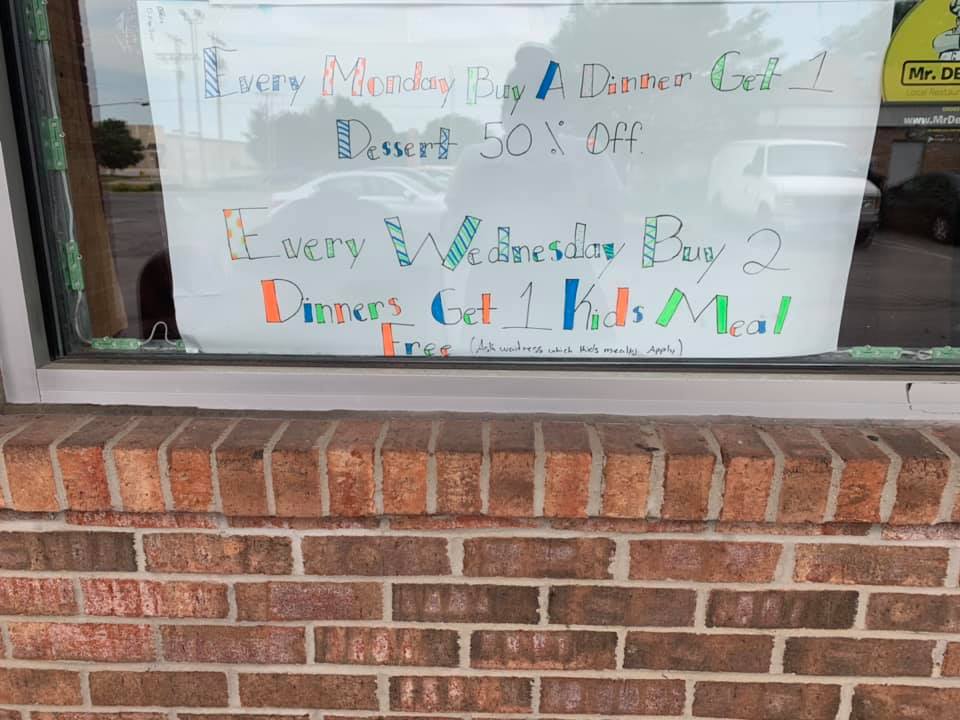 Every Monday Buy A Dinner Get 1
Dessert 50% Off.
Every Wednesday Buy 2
Dinners Get 1 Kids Meal
Free (Ask waitress which Kids meals Apply)
Mr. DE
Local Restau
www.MrDe